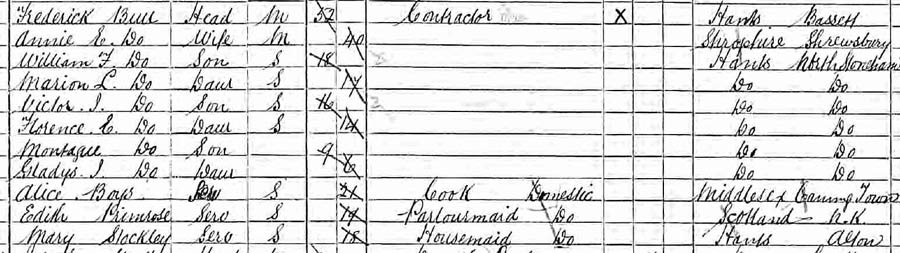 Frederick Bull Head M 52 Contractor X Hants Bassett
Annie E. Do Wife M 40 Shropshire Shrewsbury
William F. Do Son S 18 Hants North Stoneham
Marion L. Do Daur S 17 Do Do
Victor. I. Do Son S 16 Do Do
Florence. E. Do Daur S 14 Do Do
Montague Do Son 9 Do Do
Gladys. I. Do Daur 6 Do Do
Alice Boys Serv S 21 Cook Domestic Middlesex Caning Town
Edith Primrose Serv S 19 Parlourmaid Do Scotland N.K
Mary Stockley Serv S 18 Housemaid Do Hants